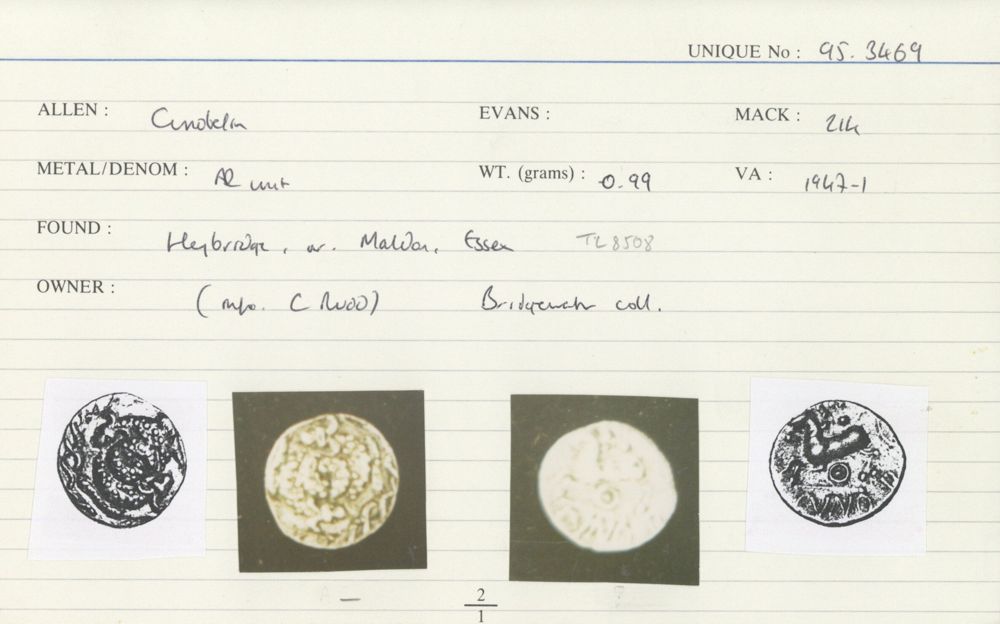 UNIQUE No : 95. 3469
ALLEN : Cunobelin EVANS : MACK : 214
METAL/DENOM : AR unit WT. (grams) : 0.99 VA : 1947-1
FOUND : Heybridge, nr. Maldon, Essex TL 8508
OWNER : (info. C Rudd) Bridgewater coll.
2
1